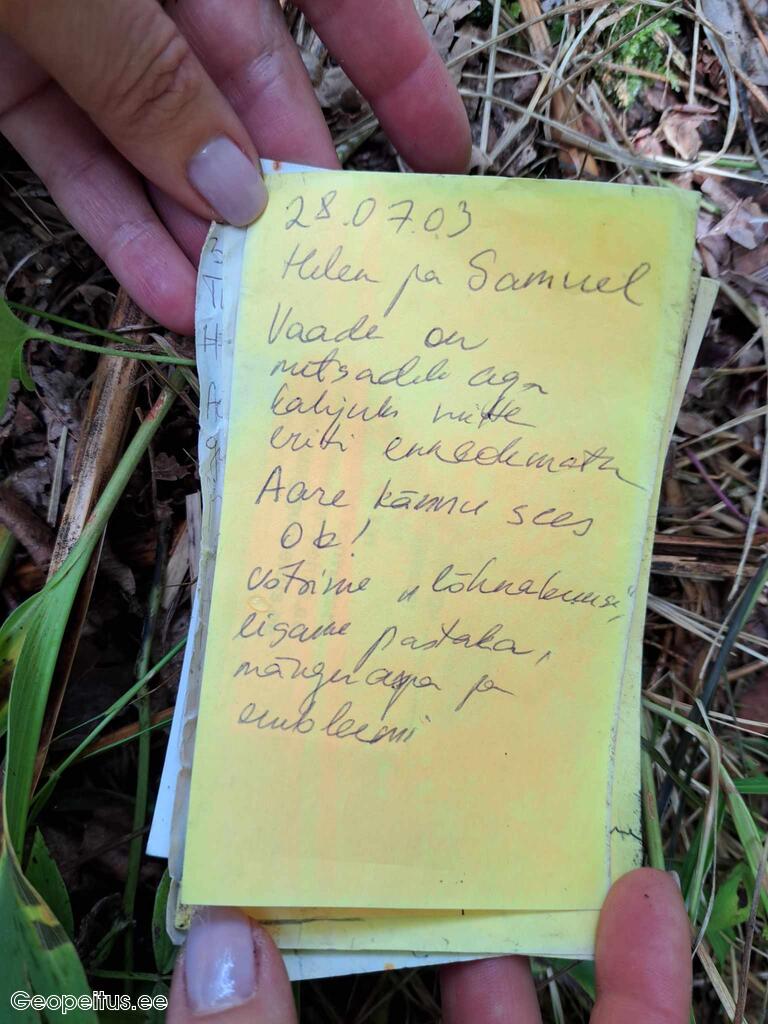 28.07.03
Helen ja Samuel
Vaade on
metsadele aga
kahjuks mitte
eriti
Aare kännu sees
Ok!
Võtsime „lõhnakuuse",
lisame pastaka,
mänguraha ja
embleemi
Geopeitus.ee